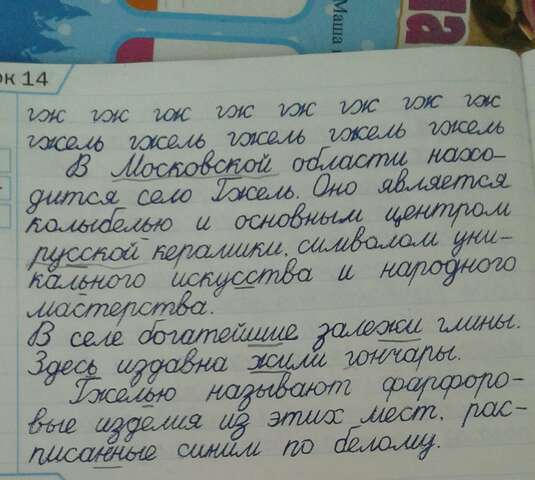 Маша
ма
ок 14
гж гж гж гж гж гж гж гж
гжель гжель гжель гжель гжель
В Московской области нахо-
дится село Гжель. Оно является
колыбелью и основным центром
русской керамики, символом уни-
кального искусства и народного
мастерства.
В селе богатейшие залежи глины.
Здесь издавна жили гончары.
Гжелью называют фарфоро-
вые изделия из этих мест, рас-
писанные синим по белому.